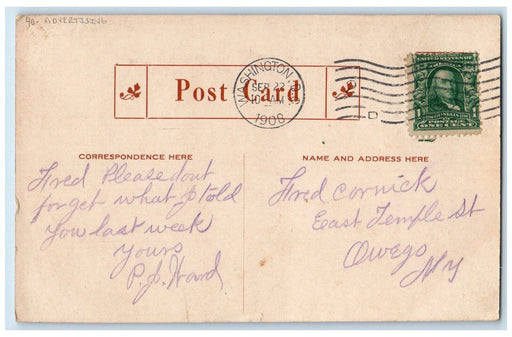 40- ADVERTISING
Post Card
WASHINGTON, D.
SEP 22
10 AM
1908
D
UNITED STATES OF
POSTAGE
ONE CENT
CORRESPONDENCE HERE
Fred Please dont
forget what I told
you last week
yours
P.J. Ward
NAME AND ADDRESS HERE
Fred Cornick
East Temple St
Owego
NY